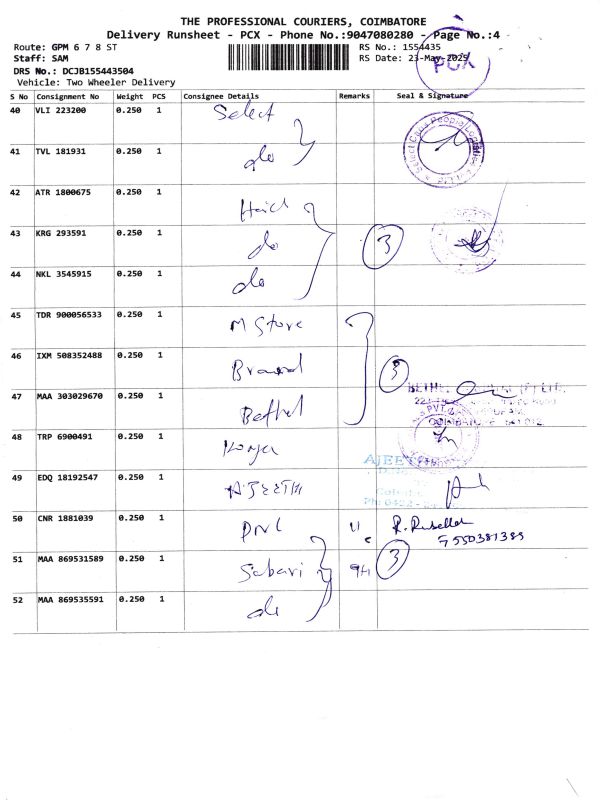 THE PROFESSIONAL COURIERS, COIMBATORE
Delivery Runsheet - PCX - Phone No.:9047080280 - Page No.:4
Route: GPM 6 7 8 ST
RS No.: 1554435
Staff: SAM
RS Date: 23-May-2025
PCX
DRS No.: DCJB155443504
Vehicle: Two Wheeler Delivery
S No Consignment No Weight PCS Consignee Details Remarks Seal & Signature
40 VLI 223200 0.250 1 Select
41 TVL 181931 0.250 1 do
42 ATR 1800675 0.250 1
43 KRG 293591 0.250 1 do 3
44 NKL 3545915 0.250 1 do
45 TDR 900056533 0.250 1 M Store
46 IXM 508352488 0.250 1 Brand 3
47 MAA 303029670 0.250 1 Bethel
48 TRP 6900491 0.250 1
49 EDQ 18192547 0.250 1 AJEETH
50 CNR 1881039 0.250 1
51 MAA 869531589 0.250 1 Sabari 3
52 MAA 869535591 0.250 1 do